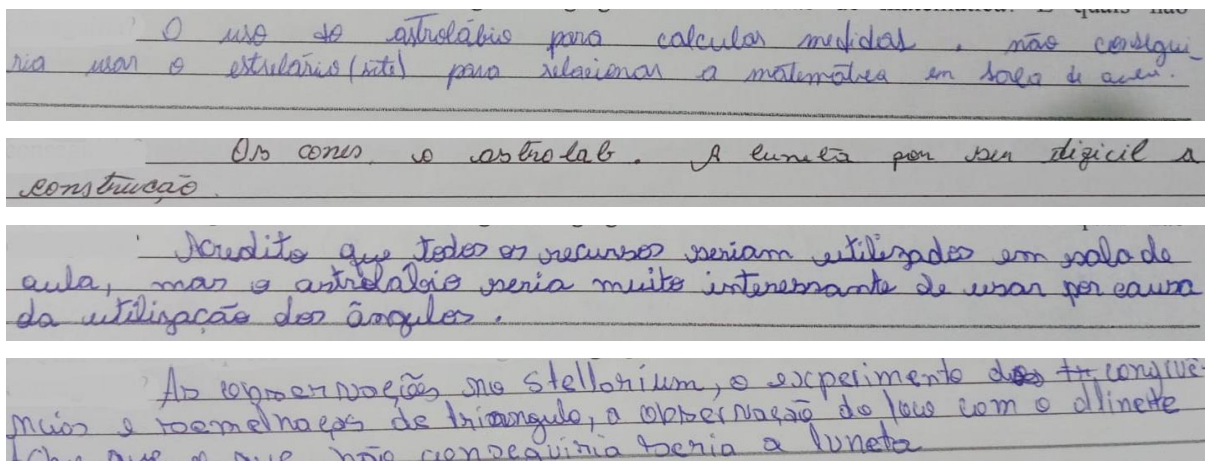 matemática? E quais não
O uso do astrolábio para calcular medidas, não consegui-
ria usar o estrelário (site) para relacionar a matemática em sala de aula.
Os cones, o astrolab. A luneta por ser dificil a
construcão.
Acredito que todos os recursos seriam utilizados em sala de
aula, mas o astrolábio seria muito interessante de usar por causa
da utilização dos ângulos.
As observações no Stellorium, o experimento das congruê-
ncias e semelhaças de triangulo, a observação do foco com o alinete
que o que não conseguiria seria a luneta